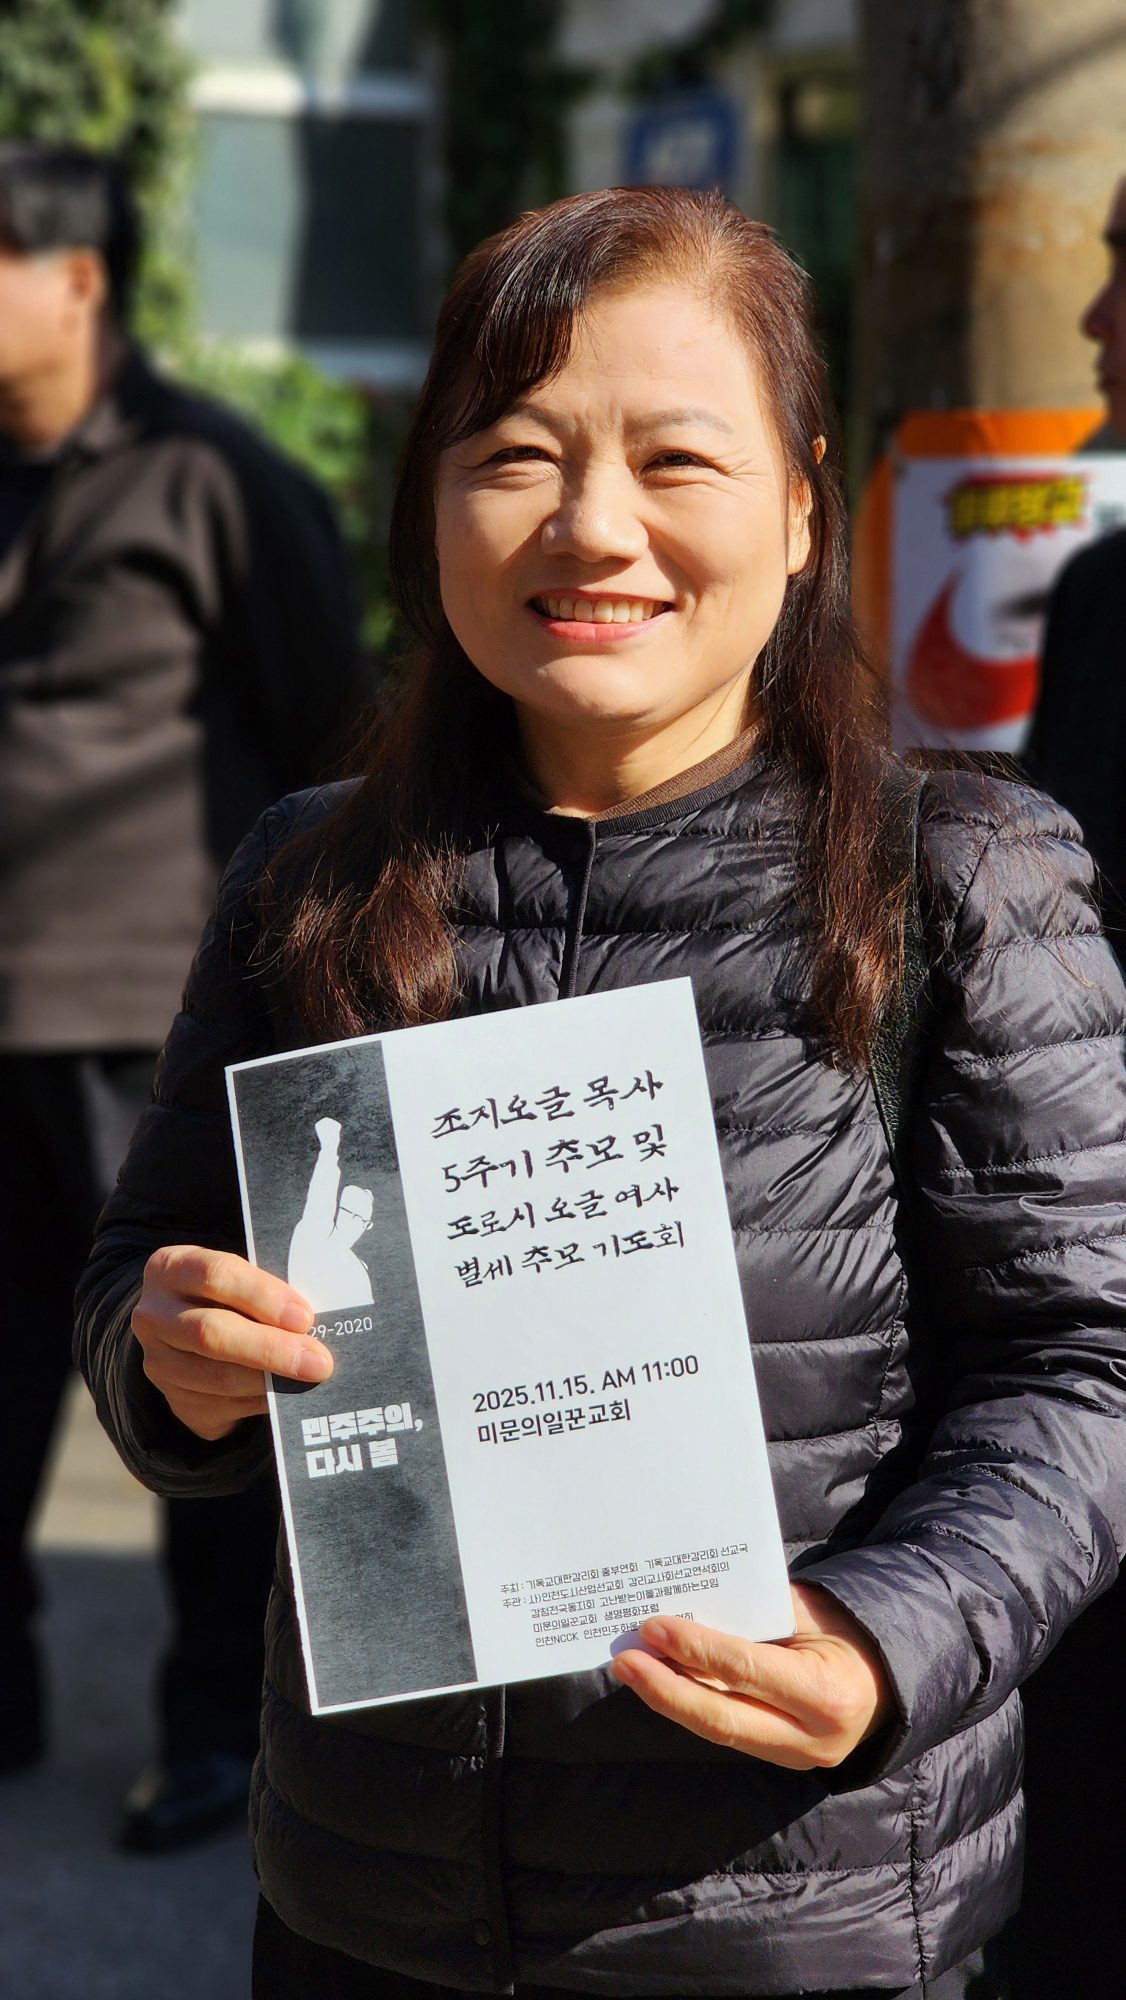 조지오글 목사
5주기 추모 및
도로시 오글 여사
별세 추모 기도회
29-2020
민주주의,
다시 봄
2025.11.15. AM 11:00
미문의일꾼교회
주최 : 기독교대한감리회 중부연회 기독교대한감리회 선교국
주관 : 사)인천도시산업선교회 감리교사회선교연석회의
감청전국동지회 고난받는이들과함께하는모임
미문의일꾼교회 생명평화포럼
인천NCCK 인천민주화운